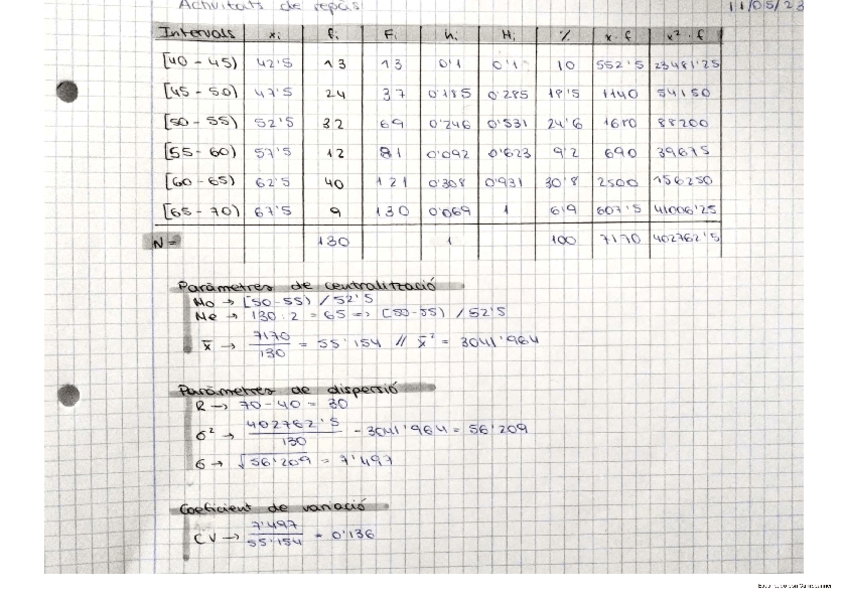 Activitats de repàs 11/05/23
Intervals xi fi Fi hi Hi % x·f x²·f
[40-45) 42'5 13 13 0'1 0'1 10 552'5 23481'25
[45-50) 47'5 24 37 0'185 0'285 18'5 1140 54150
[50-55) 52'5 32 69 0'246 0'531 24'6 1680 88200
[55-60) 57'5 12 81 0'092 0'623 9'2 690 39675
[60-65) 62'5 40 121 0'308 0'931 30'8 2500 156250
[65-70) 67'5 9 130 0'069 1 6'9 607'5 41006'25
N= 130 1 100 7170 402762'5
Paràmetres de centralització
Mo → [50-55) / 52'5
Me → 130:2 = 65 => [50-55) / 52'5
x̄ → 7170/130 = 55'154 // x̄² = 3041'964
Paràmetres de dispersió
R → 70-40 = 30
σ² → 402762'5/130 - 3041'964 = 56'209
σ → √56'209 = 7'497
Coeficient de variació
CV → 7'497/55'154 = 0'136